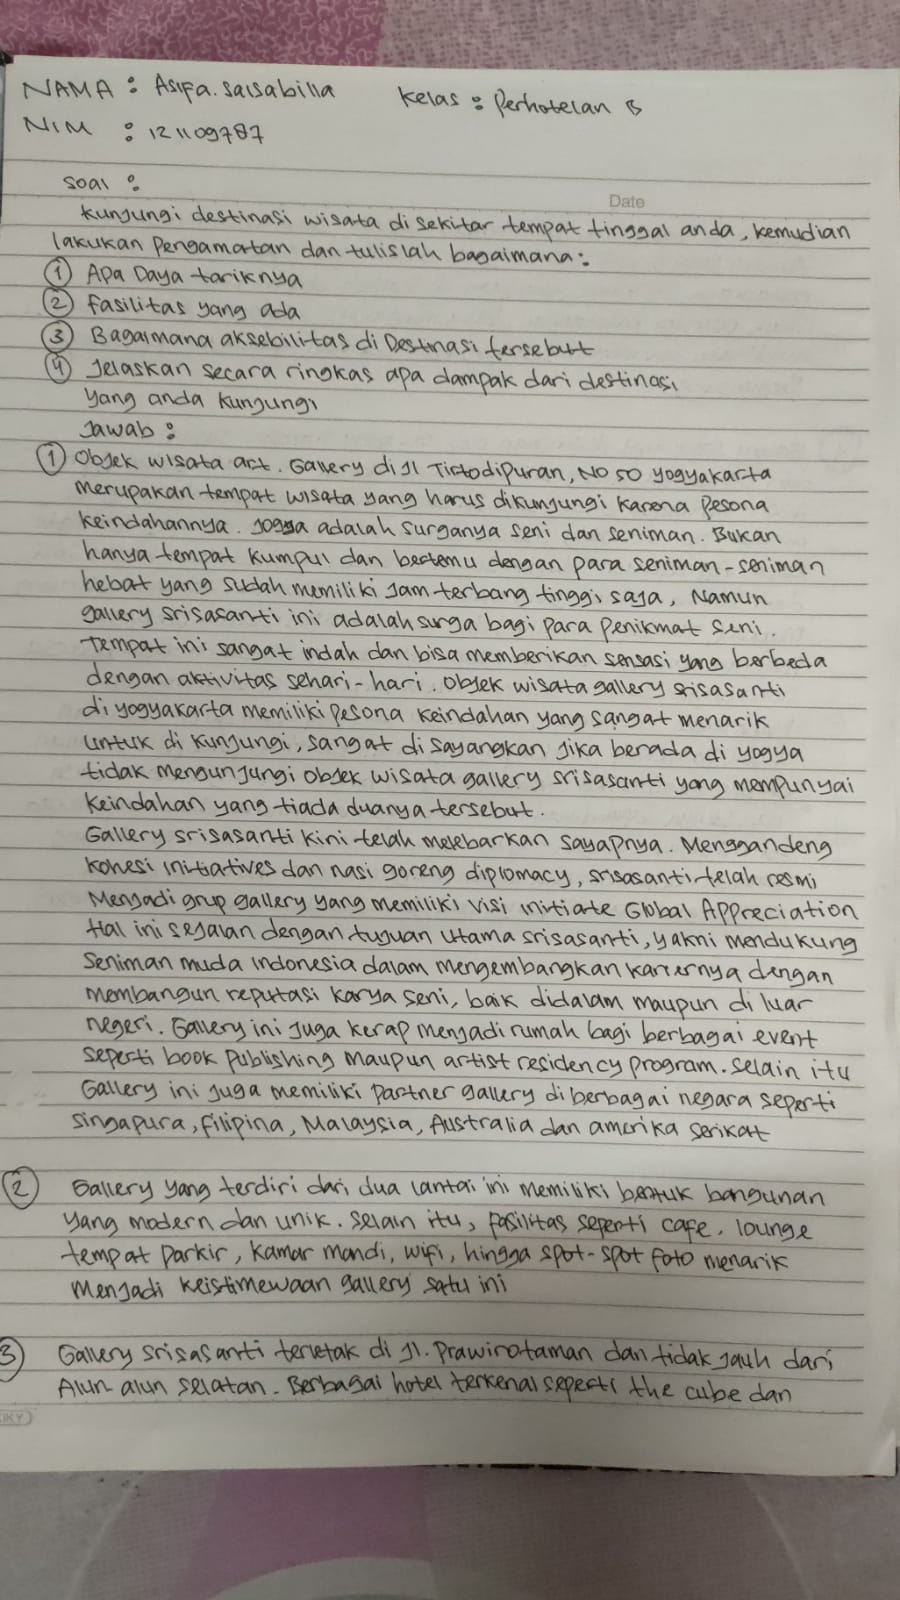 NAMA : Asifa.salsabilla Kelas : Perhotelan B
NIM : 121109787
Date
soal :
Kunjungi destinasi wisata di sekitar tempat tinggal anda, kemudian
lakukan pengamatan dan tulislah bagaimana :
① Apa Daya tariknya
② fasilitas yang ada
③ Bagaimana aksebilitas di Destinasi tersebut
④ Jelaskan secara ringkas apa dampak dari destinasi
yang anda kunjungi
Jawab :
① Objek wisata art. Gallery di Jl Tirtodipuran, No 50 yogyakarta
merupakan tempat wisata yang harus dikunjungi karena pesona
keindahannya. Jogja adalah surganya seni dan seniman. Bukan
hanya tempat kumpul dan bertemu dengan para seniman-seniman
hebat yang sudah memiliki jam terbang tinggi saja, Namun
gallery srisasanti ini adalah surga bagi para penikmat seni.
Tempat ini sangat indah dan bisa memberikan sensasi yang berbeda
dengan aktivitas sehari-hari. Objek wisata gallery srisasanti
di yogyakarta memiliki pesona keindahan yang sangat menarik
untuk di kunjungi, sangat di sayangkan jika berada di yogya
tidak mengunjungi objek wisata gallery srisasanti yang mempunyai
keindahan yang tiada duanya tersebut.
Gallery srisasanti kini telah melebarkan sayapnya. Menggandeng
kohesi initiatives dan nasi goreng diplomacy, srisasanti telah resmi
Menjadi grup gallery yang memiliki visi initiate Global Appreciation
Hal ini sejalan dengan tujuan utama srisasanti, yakni mendukung
seniman muda indonesia dalam mengembangkan karirnya dengan
membangun reputasi karya seni, baik didalam maupun di luar
negeri. Gallery ini juga kerap menjadi rumah bagi berbagai event
seperti book publishing maupun artist residency program. selain itu
Gallery ini juga memiliki partner gallery di berbagai negara seperti
singapura, filipina, Malaysia, Australia dan amerika serikat
② Gallery yang terdiri dari dua lantai ini memiliki bentuk bangunan
yang modern dan unik. selain itu, fasilitas seperti cafe, lounge
tempat parkir, kamar mandi, wifi, hingga spot-spot foto menarik
Menjadi keistimewaan gallery satu ini
③ Gallery srisasanti terletak di Jl. prawirotaman dan tidak jauh dari
Alun-alun selatan. Berbagai hotel terkenal seperti the cube dan